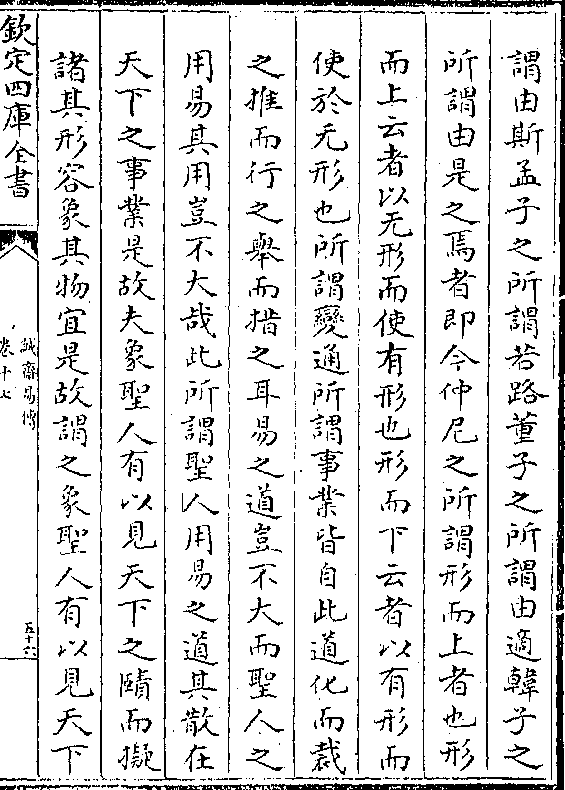 謂由斯孟子之所謂若路董子之所謂由適韓子之
所謂由是之焉者即今仲尼之所謂形而上者也形
而上云者以无形而使有形也形而下云者以有形而
使於无形也所謂變通所謂事業皆自此道化而裁
之推而行之舉而措之耳易之道豈不大而聖人之
用易其用豈不大哉此所謂聖人用易之道其散在
天下之事業是故夫象聖人有以見天下之賾而擬
諸其形容象其物宜是故謂之象聖人有以見天下
欽定四庫全書
誠齋易傳
卷十七
五十六